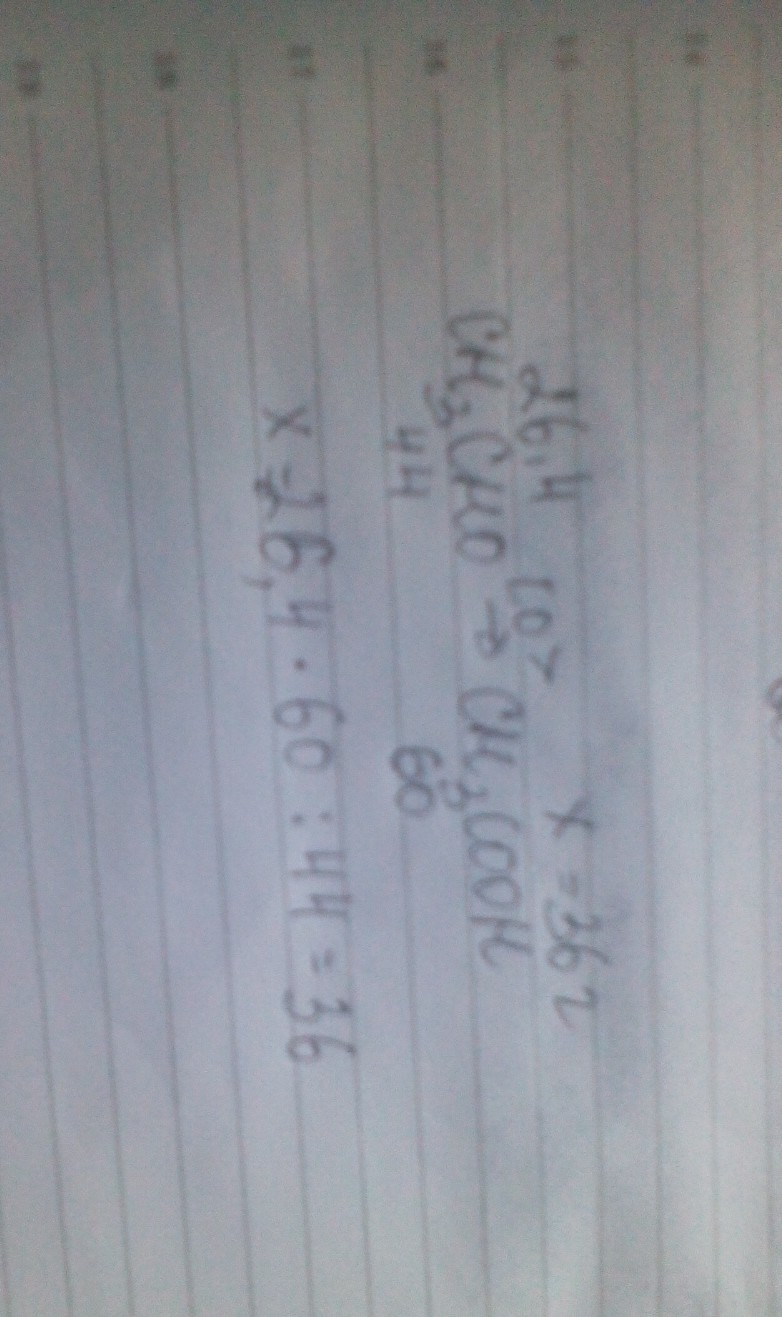 26,4 [O] x = 36 г
CH3CHO → CH3COOH
44 60
x = 26,4 · 60 : 44 = 36